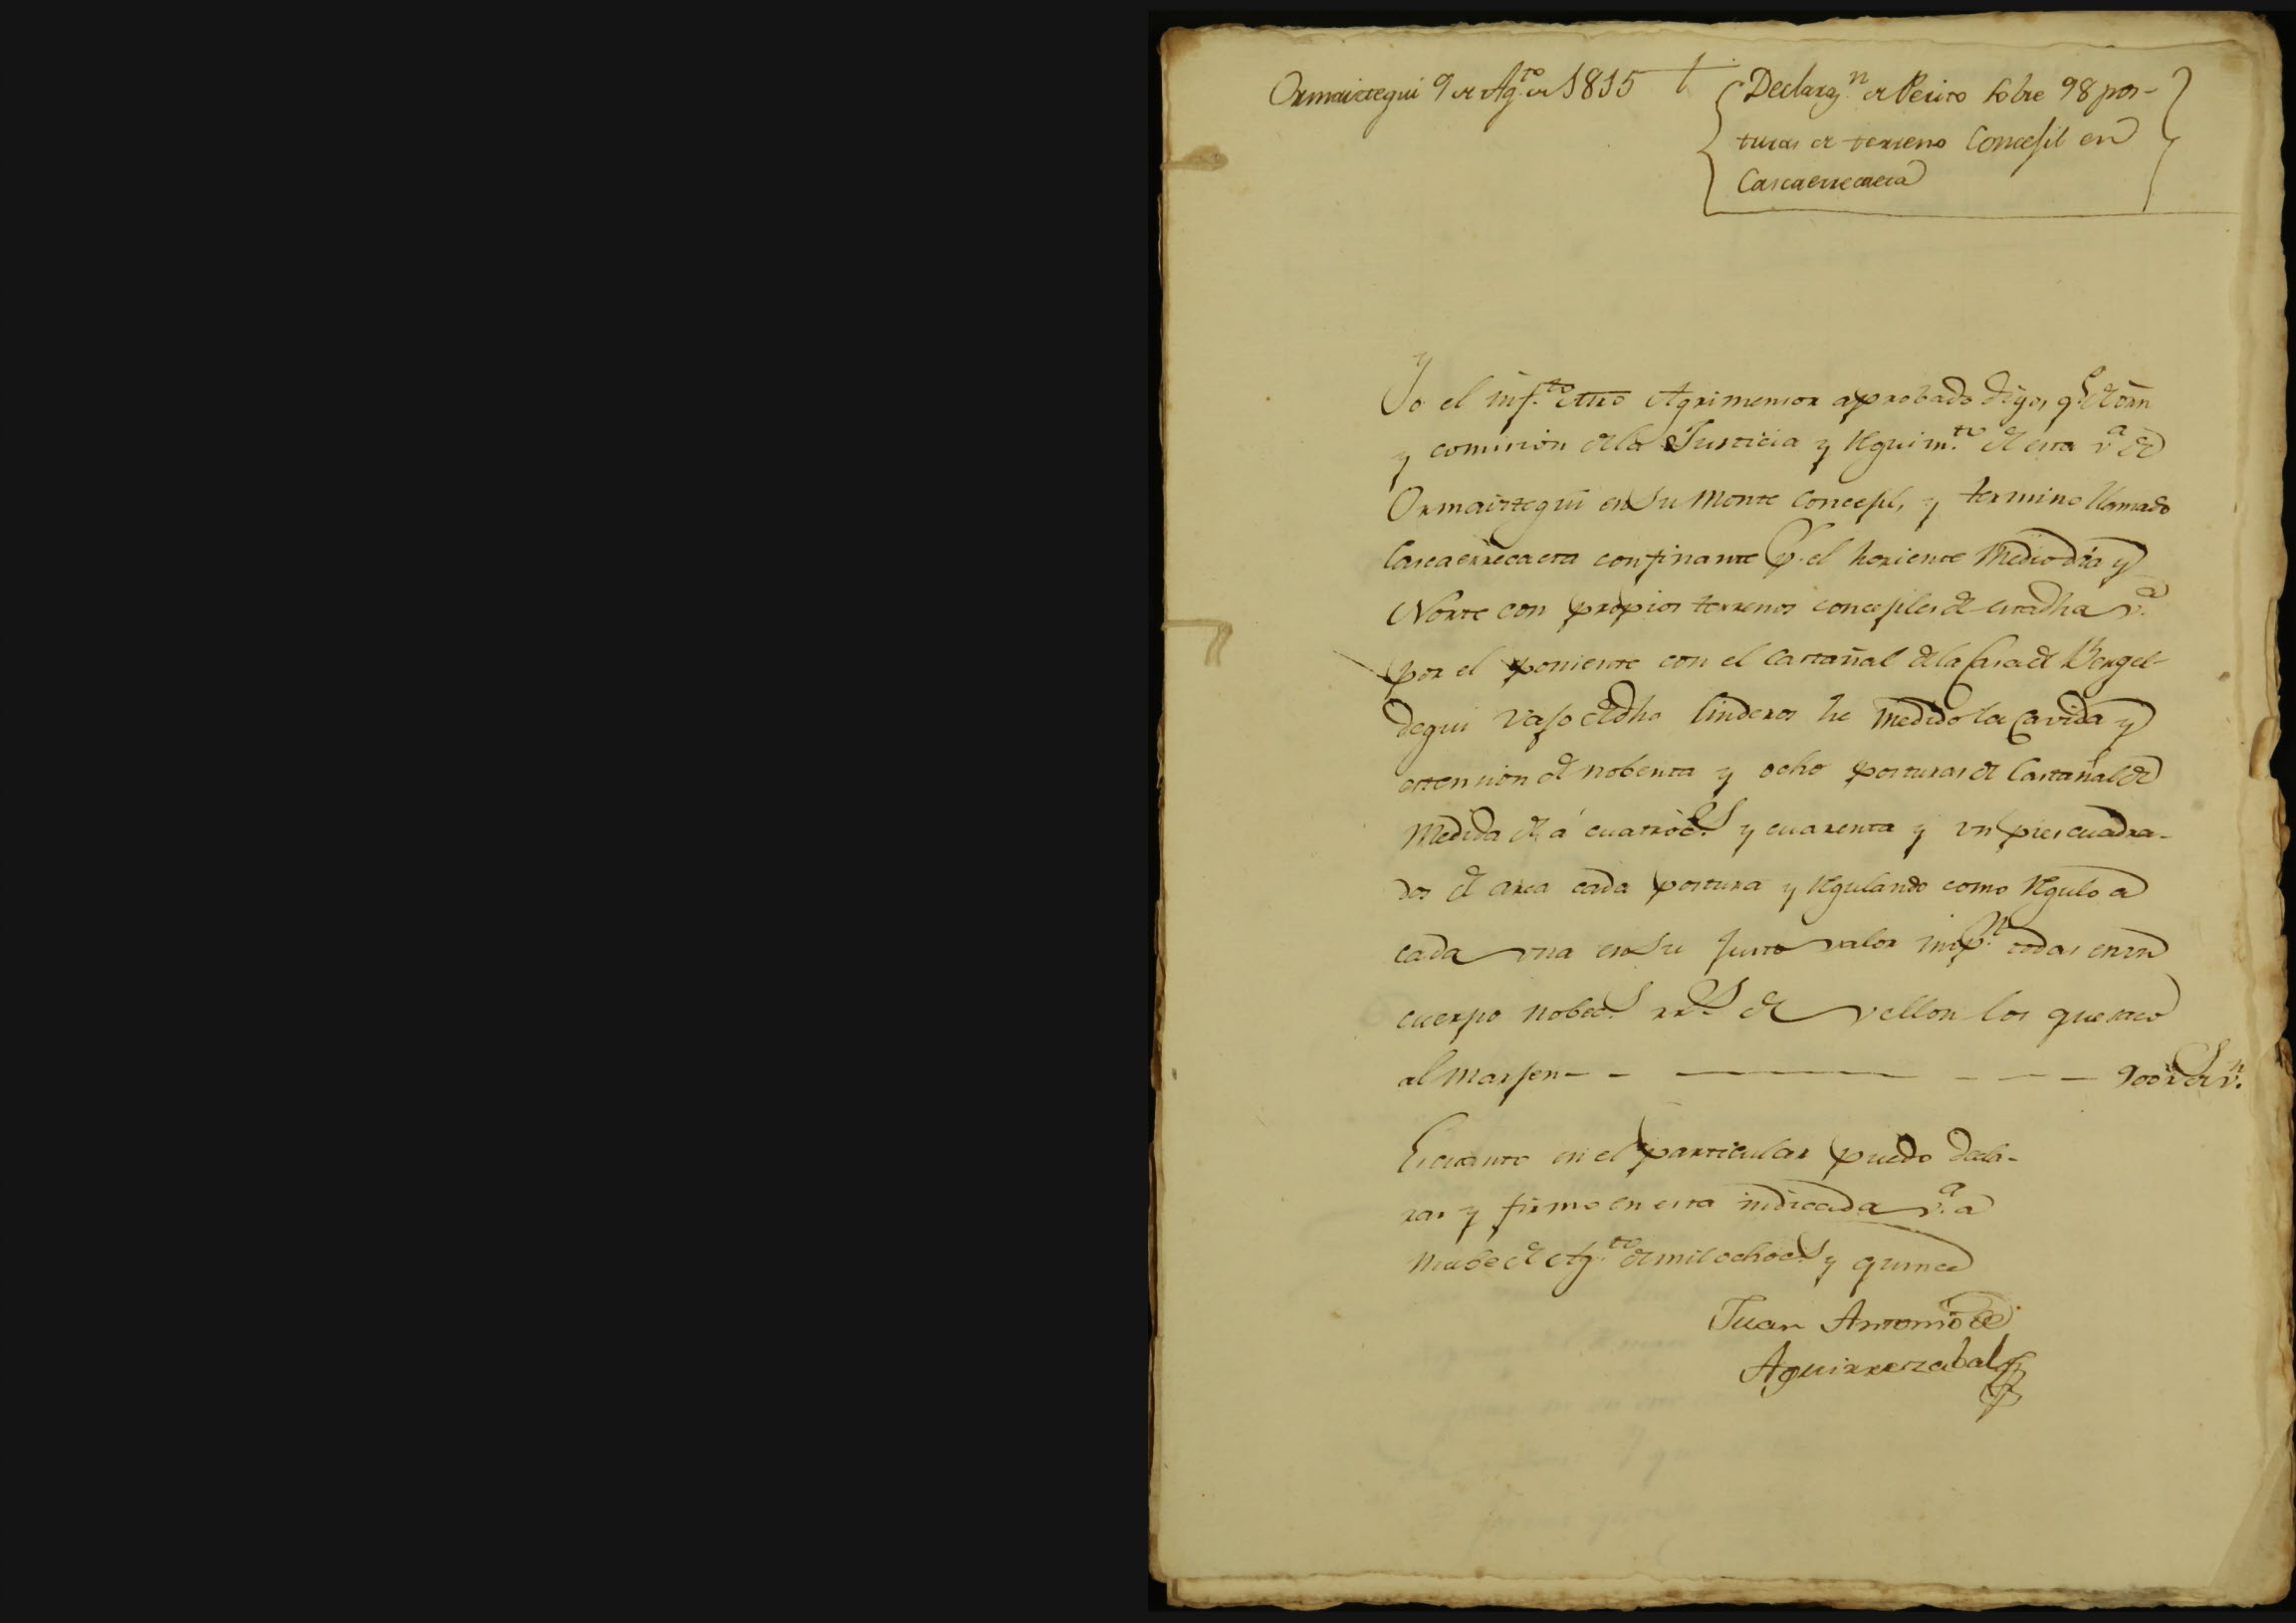 Ormaiztegui 9 de Ag.to de 1815
Declaraz.n de Perito sobre 98 pos-
turas de terreno Concejil en
Cascaerrecaeta
Yo el inf.to Mro Agrimensor aprobado digo, q.e de orn
y comision de la Justicia y Reguim.to de esta v.a de
Ormaiztegui en su monte concejil, y termino llamado
Cascaerrecaeta confinante p.r el horiente Mediodia y
Norte con propios terrenos concejiles de esta dha v.a
por el poniente con el castañal de la Casa de Bergel-
degui vajo de dho linderos he medido la cavida y
estension de nobenta y ocho posturas de Castañal de
Medida de á cuatroc.s y cuarenta y un pies cuadra-
dos de area cada postura y regulando como regulo a
cada una en su justo valor imp.n todas en un
cuerpo nobec.s rr.s de vellon los que saco
al marjen - - — - - - 900 r.s de v.n
Es cuanto en el particular puedo decla-
rar y firmo en esta indicada v.a a
nuebe de Ag.to de mil ochoc.s y quince
Juan Antonio de
Aguirrezabal